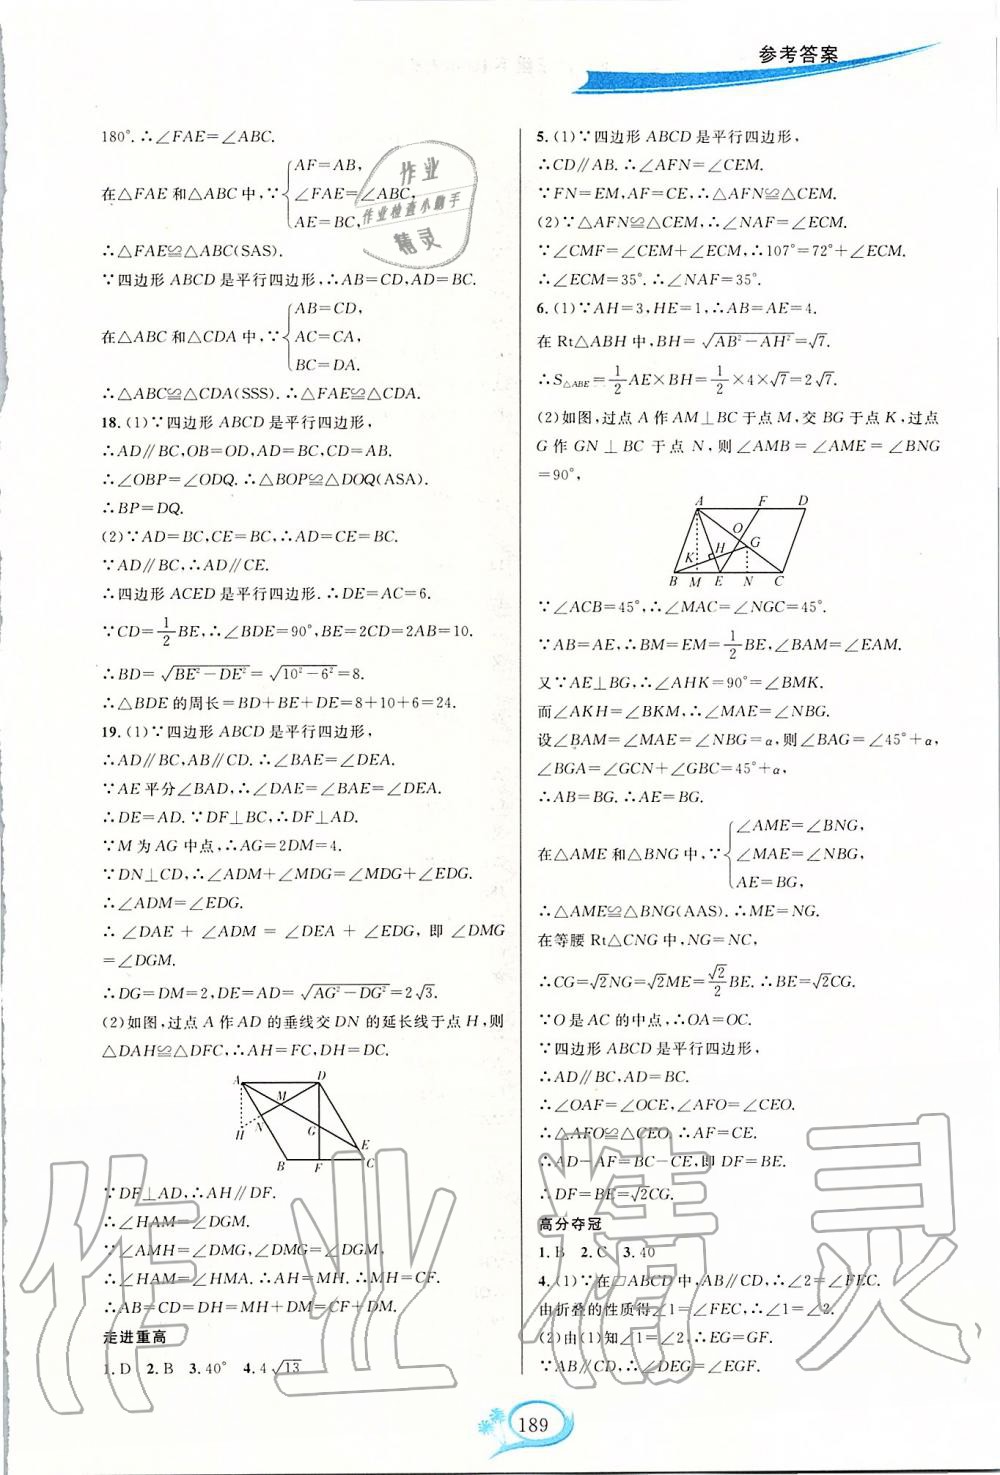 参考答案
180°.∴∠FAE=∠ABC.
在△FAE和△ABC中,∵{AF=AB,
∠FAE=∠ABC,
AE=BC,
∴△FAE≌△ABC(SAS).
∵四边形ABCD是平行四边形,∴AB=CD,AD=BC.
在△ABC和△CDA中,∵{AB=CD,
AC=CA,
BC=DA.
∴△ABC≌△CDA(SSS).∴△FAE≌△CDA.
18.(1)∵四边形ABCD是平行四边形,
∴AD∥BC,OB=OD,AD=BC,CD=AB.
∴∠OBP=∠ODQ.∴△BOP≌△DOQ(ASA).
∴BP=DQ.
(2)∵AD=BC,CE=BC,∴AD=CE.
∵AD∥BC,∴AD∥CE.
∴四边形ACED是平行四边形.∴DE=AC=6.
∵CD=1/2BE,∴∠BDE=90°,BE=2CD=2AB=10.
∴BD=√(BE²-DE²)=√(10²-6²)=8.
∴△BDE的周长=BD+BE+DE=8+10+6=24.
19.(1)∵四边形ABCD是平行四边形,
∴AD∥BC,AB∥CD.∴∠BAE=∠DEA.
∵AE平分∠BAD,∴∠DAE=∠BAE=∠DEA.
∴DE=AD.∵DF⊥BC,∴DF⊥AD.
∵M为AG中点,∴AG=2DM=4.
∵DN⊥CD,∴∠ADM+∠MDG=∠MDG+∠EDG.
∴∠ADM=∠EDG.
∴∠DAE+∠ADM=∠DEA+∠EDG,即∠DMG
=∠DGM.
∴DG=DM=2,DE=AD=√(AG²-DG²)=2√3.
(2)如图,过点A作AD的垂线交DN的延长线于点H,则
△DAH≌△DFC,∴AH=FC,DH=DC.
A D
M
H N G
E
B F C
∵DF⊥AD,∴AH∥DF.
∴∠HAM=∠DGM.
∵∠AMH=∠DMG,∠DMG=∠DGM.
∴∠HAM=∠HMA.∴AH=MH.∴MH=CF.
∴AB=CD=DH=MH+DM=CF+DM.
走进重高
1.D 2.B 3.40° 4.4√13
5.(1)∵四边形ABCD是平行四边形,
∴CD∥AB.∴∠AFN=∠CEM.
∵FN=EM,AF=CE,∴△AFN≌△CEM.
(2)∵△AFN≌△CEM,∴∠NAF=∠ECM.
∵∠CMF=∠CEM+∠ECM,∴107°=72°+∠ECM.
∴∠ECM=35°.∴∠NAF=35°.
6.(1)∵AH=3,HE=1,∴AB=AE=4.
在Rt△ABH中,BH=√(AB²-AH²)=√7.
∴S△ABE=1/2AE×BH=1/2×4×√7=2√7.
(2)如图,过点A作AM⊥BC于点M,交BG于点K,过点
G作GN⊥BC于点N,则∠AMB=∠AME=∠BNG
=90°,
A F D
O
H G
K
B M E N C
∵∠ACB=45°,∴∠MAC=∠NGC=45°.
∵AB=AE,∴BM=EM=1/2BE,∠BAM=∠EAM.
又∵AE⊥BG,∴∠AHK=90°=∠BMK.
而∠AKH=∠BKM,∴∠MAE=∠NBG.
设∠BAM=∠MAE=∠NBG=α,则∠BAG=∠45°+α,
∠BGA=∠GCN+∠GBC=45°+α,
∴AB=BG.∴AE=BG.
在△AME和△BNG中,∵{∠AME=∠BNG,
∠MAE=∠NBG,
AE=BG,
∴△AME≌△BNG(AAS).∴ME=NG.
在等腰Rt△CNG中,NG=NC,
∴CG=√2NG=√2ME=√2/2BE.∴BE=√2CG.
∵O是AC的中点,∴OA=OC.
∵四边形ABCD是平行四边形,
∴AD∥BC,AD=BC.
∴∠OAF=∠OCE,∠AFO=∠CEO.
∴△AFO≌△CEO.∴AF=CE.
∴AD-AF=BC-CE,即DF=BE.
∴DF=BE=√2CG.
高分夺冠
1.B 2.C 3.40
4.(1)∵在▱ABCD中,AB∥CD,∴∠2=∠FEC.
由折叠的性质得∠1=∠FEC,∴∠1=∠2.
(2)由(1)知∠1=∠2,∴EG=GF.
∵AB∥CD,∴∠DEG=∠EGF.
189
作业
作业检查小助手
精灵
作业精灵